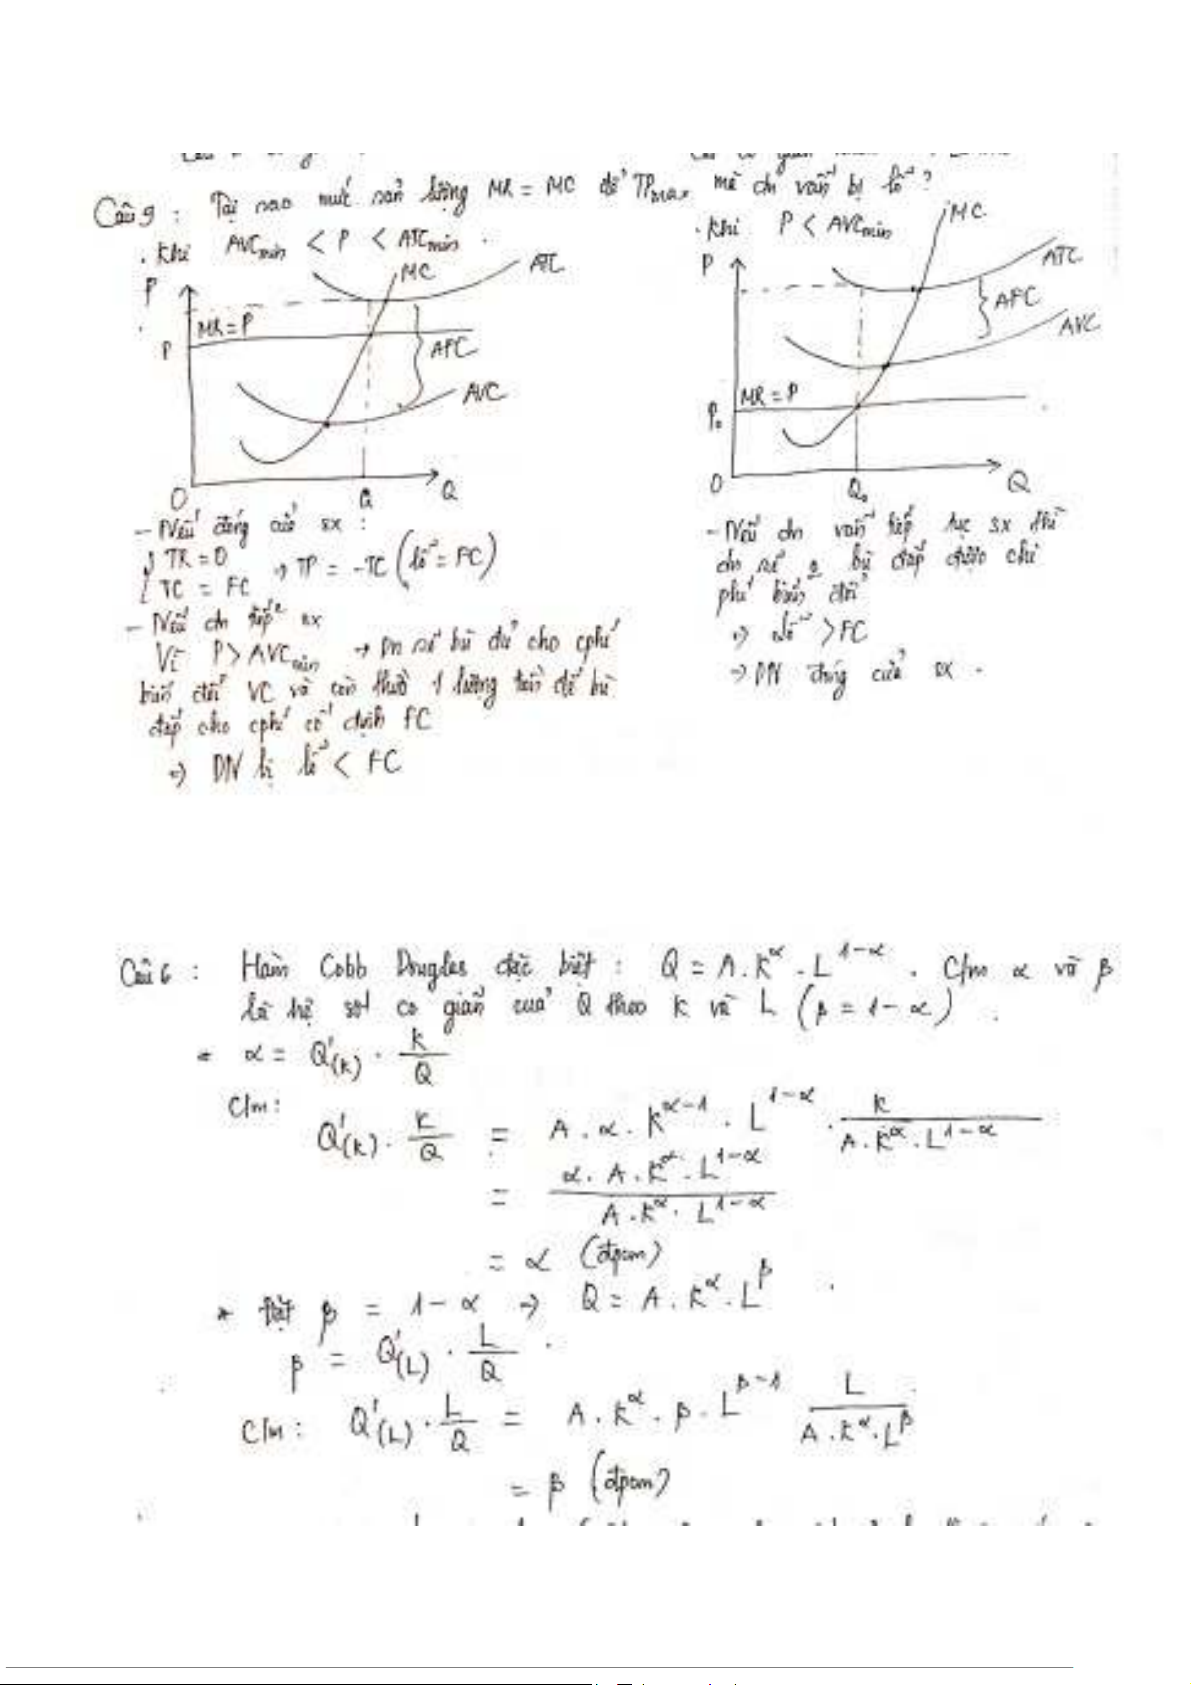 Câu 9 : Tại sao mức sản lượng MR = MC để TPmax mà dn vẫn bị lỗ ?
. Khi AVCmin < P < ATCmin .
P
MC
ATC
MR = P
P
AFC
AVC
O
Q
Q
- Nếu đóng cửa sx :
{ TR = 0
{ TC = FC → TP = -TC (lỗ = FC)
- Nếu dn tiếp sx
Vì P > AVCmin → Dn sẽ bù đủ cho cphí
biến đổi VC và còn thừa 1 lượng tiền để bù
đắp cho cphí cố định FC
⇒ DN bị lỗ < FC
. Khi P < AVCmin
MC
P
ATC
AFC
AVC
MR = P
P₀
O
Q₀
Q
- Nếu dn vẫn tiếp tục sx thì
dn sẽ o bù đắp được chi
phí biến đổi
⇒ lỗ > FC
⇒ DN đóng cửa sx .
Câu 6 : Hàm Cobb Douglas đặc biệt : Q = A.K^α . L^(1-α) . C/m α và β
là hệ số co giãn của Q theo K và L (β = 1-α) .
* α = Q'(K) . K/Q
C/m :
Q'(K) . K/Q = A . α . K^(α-1) . L^(1-α) . K/(A.K^α.L^(1-α))
= (α . A . K^α . L^(1-α))/(A . K^α . L^(1-α))
= α (đpcm)
* Đặt β = 1-α → Q = A . K^α . L^β .
β = Q'(L) . L/Q .
C/m : Q'(L) . L/Q = A . K^α . β . L^(β-1) L/(A.K^α.L^β)
= β (đpcm)